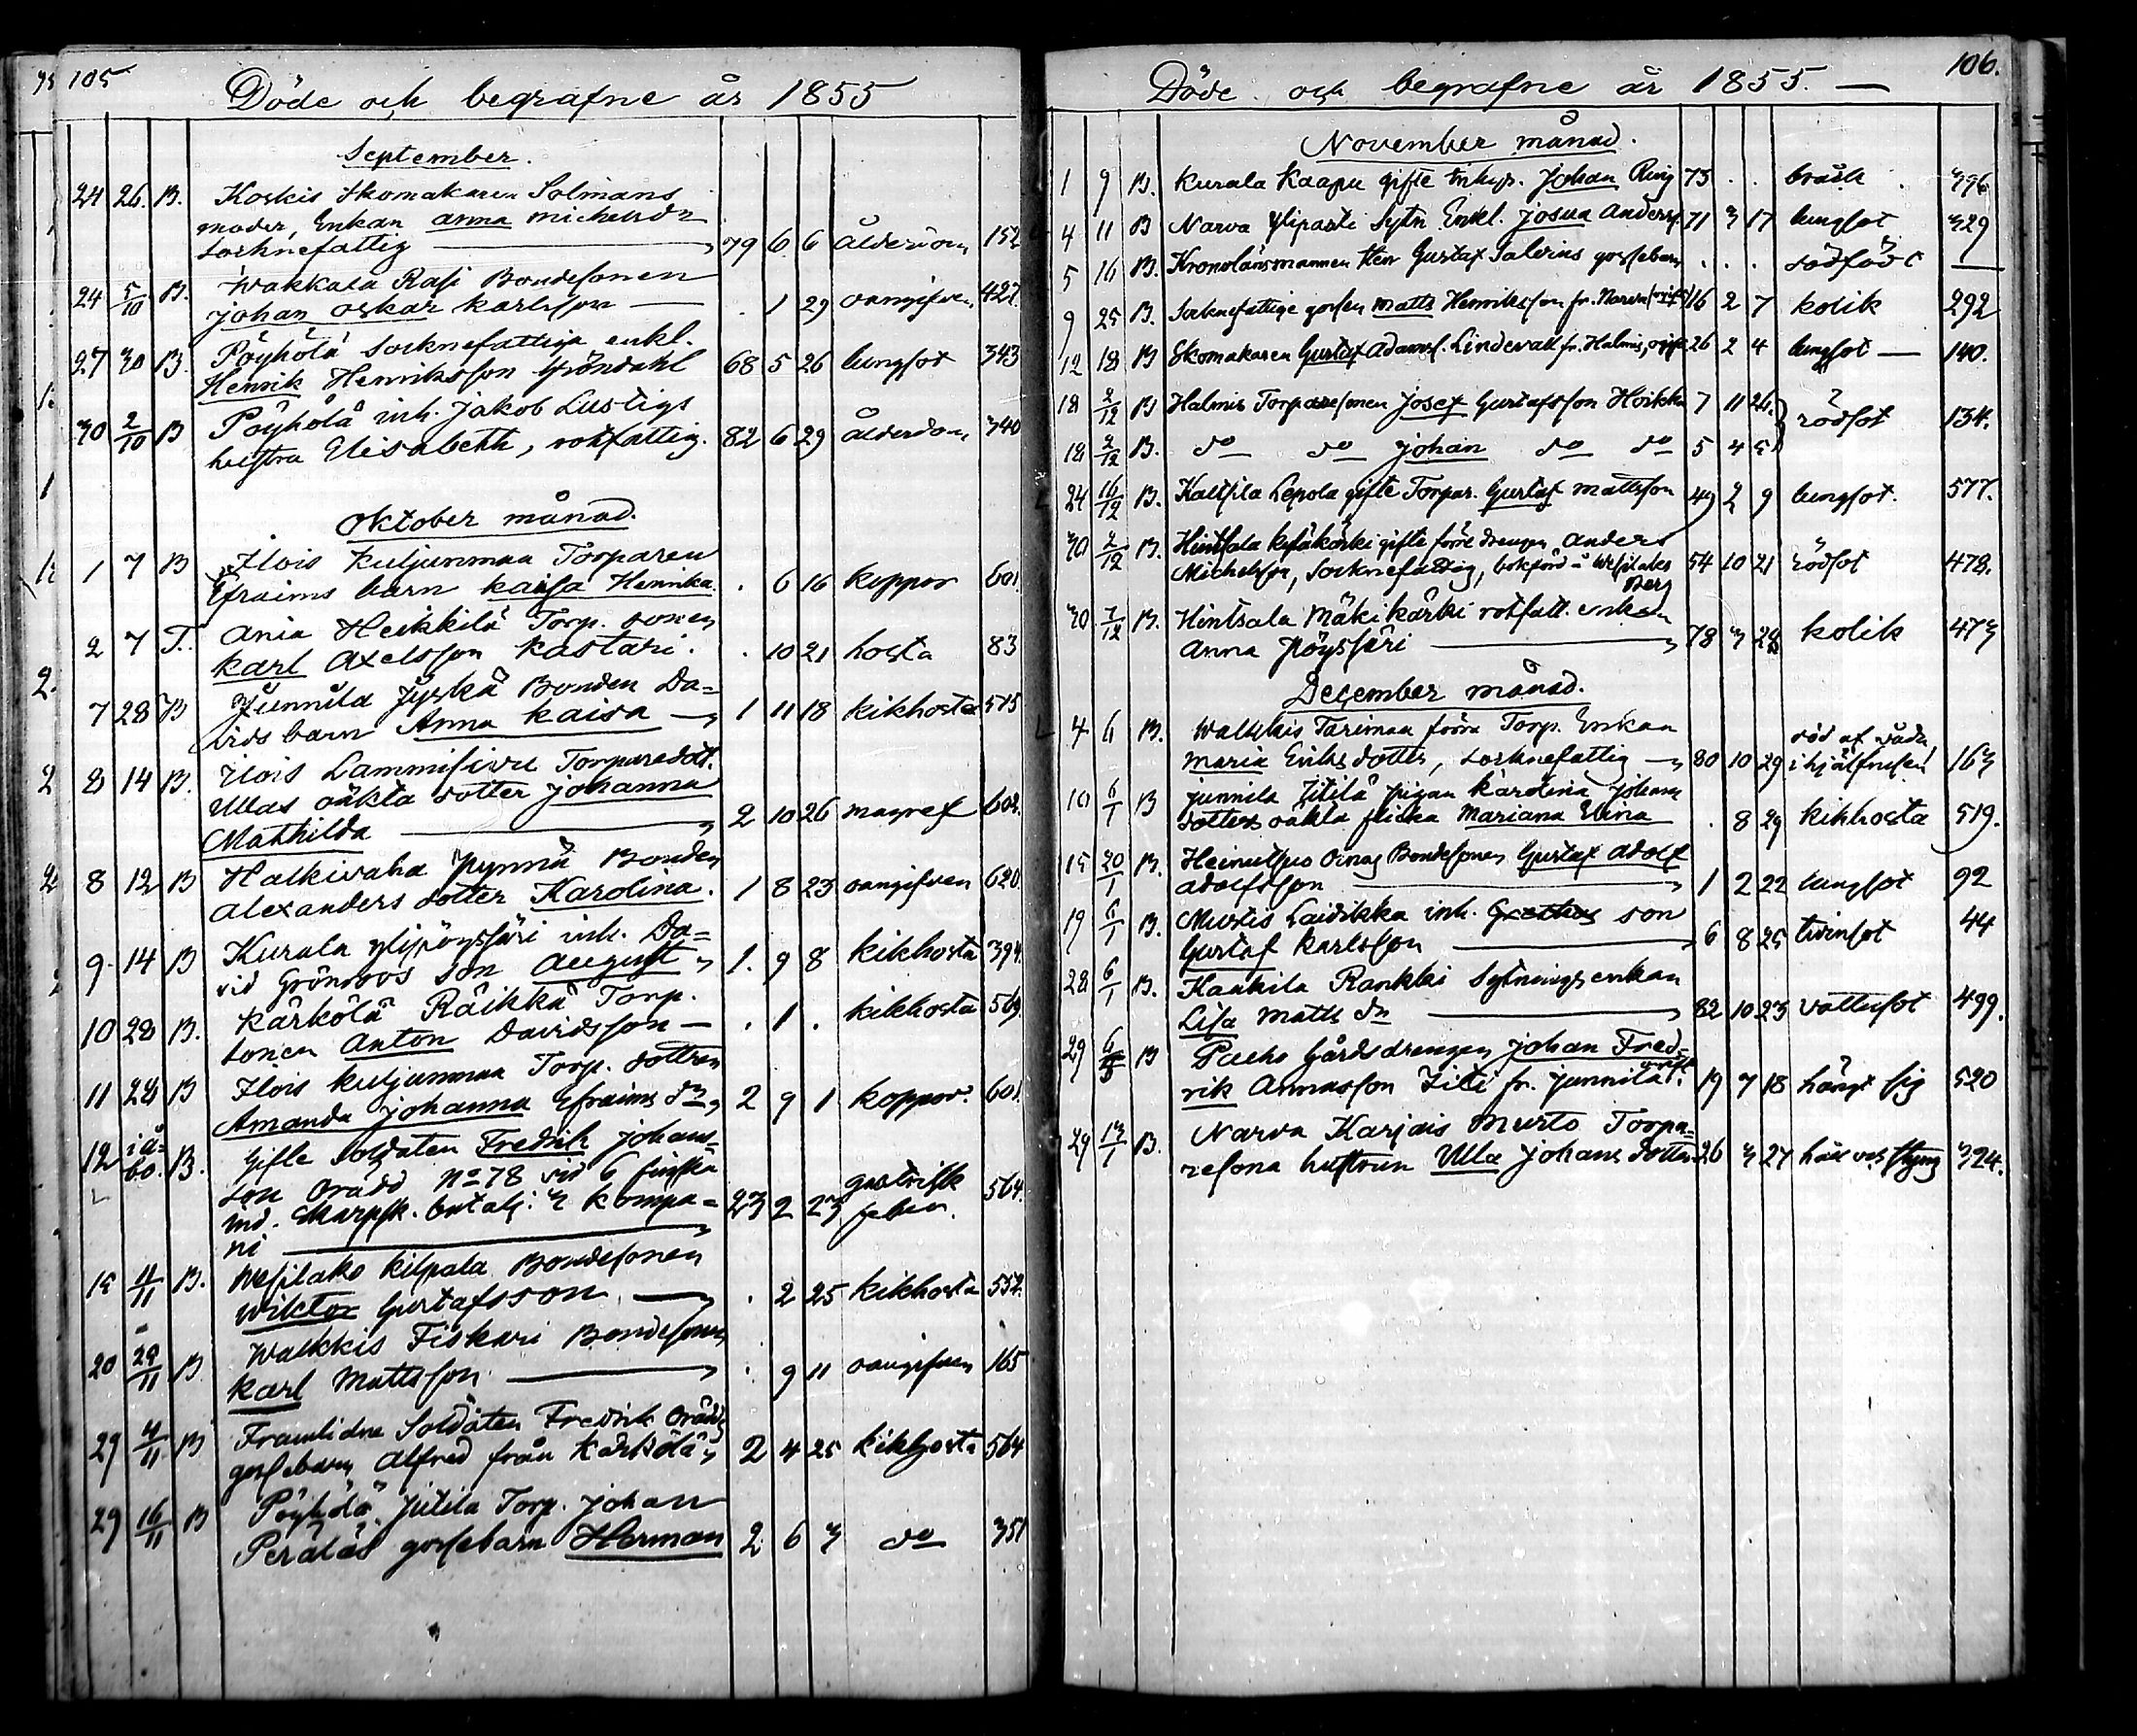 105
Döde och begrafne år 1855
September.
24 26. B. Koskis Skomakaren Solmans
moder, Enkan Anna Michelsdr
socknefattig 79 6 6 ålderdom 152
24 5/10 B. Wakkala Rasi Bondesonen
Johan Oskar Karlsson . 1 29 oangifven 427.
27 30 B. Pöyhölä Socknefattiga enkl.
Henrik Henriksson Gröndahl 68 5 26 lungsot 343
30 2/10 B Pöyhölä inh. Jakob Lustigs
hustru Elisabeth, rotfattig. 82 6 29 ålderdom 340
Oktober månad.
1 7 B Ilois Kuljunmaa Torparen
Efraims barn Kaisa Henrika . 6 16 koppor 601
2 7 T. Ania Heikkilä Torp. sonen
Karl Axelsson Kastari. . 10 21 hosta 83
7 28 B Junnila Jyskä Bonden Da=
vids barn Anna Kaisa 1 11 18 kikhosta 515
8 14 B. Ilois Lammisivu Torparedot.
Ullas oäkta dotter Johanna
Mathilda 2 10 26 magref 602.
8 12 B Halkivaha Pynnä Bonden
Alexanders dotter Karolina. 1 8 23 oangifven 620
9 14 B Kurala Ylipöysäri inh. Da=
vid Grönroos son August 1. 9 8 kikhosta 394.
10 28 B. Kärkölä Räikkä Torp.
sonen Anton Davidsson . 1 . kikhosta 569
11 28 B Ilois Kuljunmaa Torp. dottren
Amanda Johanna Efraims dr 2 9 1 koppor. 601.
12 i Å-
bo. B. Gifte Soldaten Fredrik Johans-
son Orädd No 78 vid 6 finska
ind. Skarpsk. batalj: 3 kompa=
ni 23 2 23 gastrisk
feber. 564.
15 4/11 B. Wesilaks Kilpala Bondesonen
Wiktor Gustafsson . 2 25 kikhosta 552.
20 29/11 B Walkkis Fiskari Bondesonen
Karl Mattsson . 9 11 oangifven 165
29 4/11 B Framlidne Soldaten Fredrik Orädds
gossebarn Alfred från Kärkölä 2 4 25 kikhosta 564
29 16/11 B Pöyhölä Jutila Torp. Johan
Peräläs gossebarn Herman 2 6 3 do 351
106.
Döde och begrafne år 1855.
November månad.
1 9 B. Kurala Kaapu gifte Inhys. Johan Ring 75 . . bråck 396
4 11 B Narva Ylipasti Sytn. Enkl. Josua Anderss. 71 3 17 lungsot 329
5 16 B. Kronolänsmannen Herr Gustaf Salvius gossebarn . . . dödfödt
9 25 B. Socknefattige gossen Matts Henriksson fr. Narva 16 2 7 kolik 292
12 18 B Skomakaren Gustaf Adamss. Lindevall fr. Halmis, ogift 26 2 4 lungsot 140.
18 2/12 B Halmis Torparesonen Josef Gustafsson Hoikka 7 11 26. rödsot 134.
18 2/12 B. do do Johan do do 5 4 5
24 16/12 B. Kaltsila Lepola gifte Torpar. Gustaf Mattsson 49 2 9 lungsot. 577.
30 2/12 B. Hintsala Kesäkärki gifte förre drengen Anders
Michelsson, Socknefattig, bokförd å Wesilaks
Berg 54 10 21 rödsot 478.
30 7/12 B. Hintsala Mäkikärki rotfatt. enkan
Anna Pöyssäri 78 3 28 kolik 473
December månad.
4 6 B. Walkkis Tarimaa förra Torp. Enkan
Maria Eriksdotter, socknefattig 80 10 29 död af våda
ihjälfrusen 163
10 6/1 B Junnila Jutilä Pigan Karolina Johans
dotters oäkta flicka Mariana Elina . 8 29 kikhosta 519.
15 20/1 B. Heinutsuo Ornas Bondesonen Gustaf Adolf
Adolfsson 1 2 22 lungsot 92
19 6/1 B. Murtis Laidikka inh. son
Gustaf Karlsson 6 8 25 tvinsot 44
28 6/1 B. Kaakila Rankki Sytningsenkan
Lisa Matts dr 82 10 23 vattusot 499.
29 B Pacho Gårdsdrengen Johan Fred-
rik Annasson Iili fr. Junnila ogift. 19 7 18 hängt sig 520
29 13/1 B. Narva Karjais Murto Torpa-
resona hustrun Ulla Johans dotter 26 3 27 håll och styng 324.